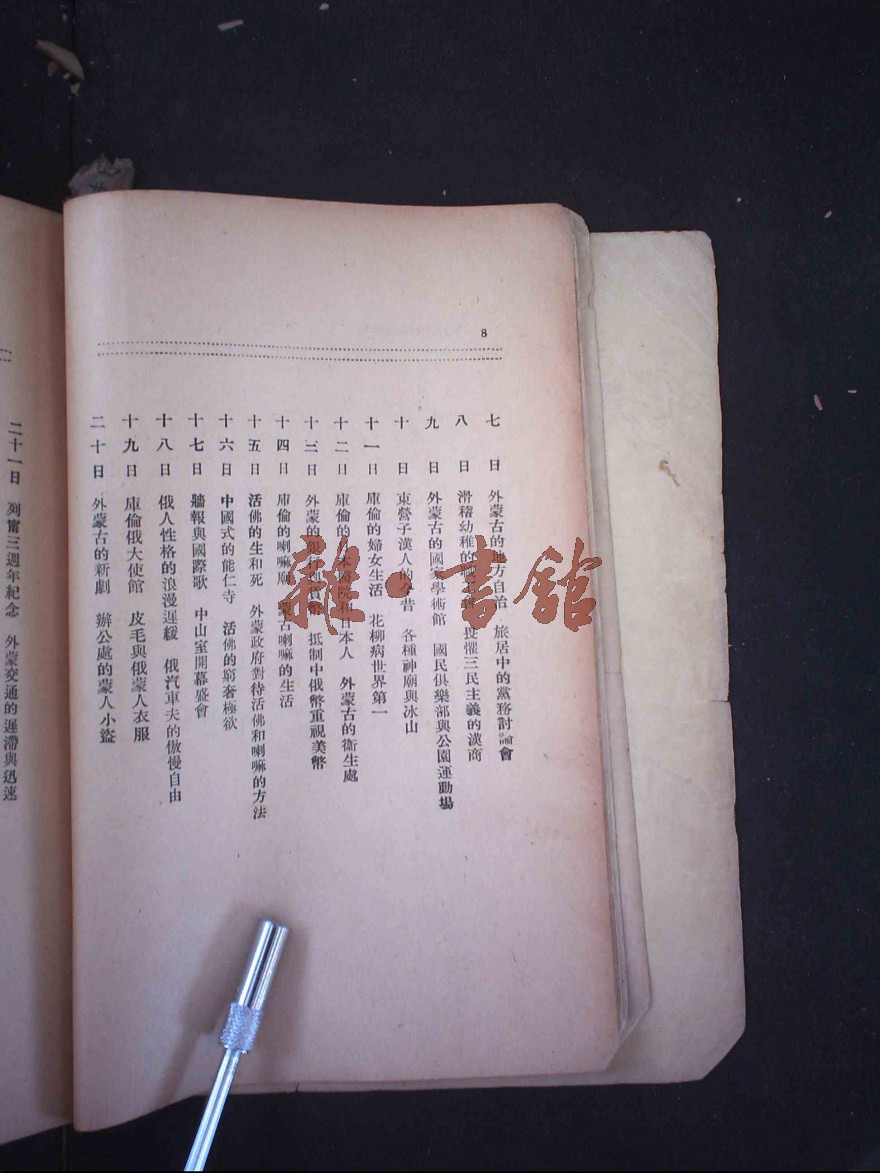 8
七日 外蒙古的地方自治 旅居中的黨務討論會
八日 滑稽幼稚的 畏懼三民主義的漢商
九日 外蒙古的國家學術館 國民俱樂部與公園運動場
十日 東營子漢人的今昔 各種神廟與冰山
十一日 庫倫的婦女生活 花柳病世界第一
十二日 庫倫的日本醫院和日本人 外蒙古的衛生處
十三日 外蒙的銀行與貨幣 抵制中俄幣重視美幣
十四日 庫倫的喇嘛廟 蒙古喇嘛的生活
十五日 活佛的生和死 外蒙政府對待活佛和喇嘛的方法
十六日 中國式的能仁寺 活佛的窮奢極欲
十七日 牆報與國際歌 中山室開幕盛會
十八日 俄人性格的浪漫遲緩 俄汽車夫的傲慢自由
十九日 庫倫俄大使館 皮毛與俄蒙人衣服
二十日 外蒙古的新劇 辦公處的蒙人小盜
二十一日 列甯三週年紀念 外蒙交通的遲滯與迅速
雜·書館